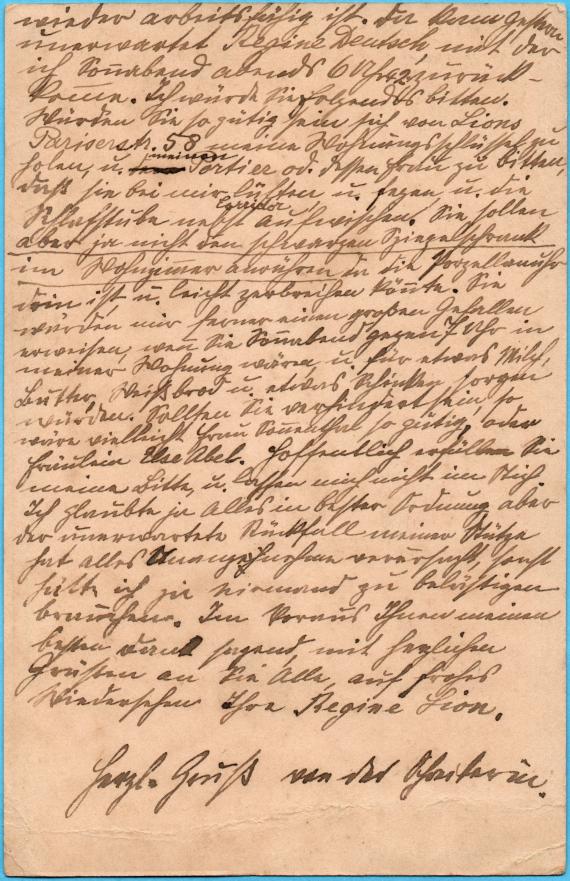 wieder arbeitsfähig ist. Da kam gestern
unerwartet Regine Deutsch, mit der
ich Sonnabend abends 6 Uhr zurück-
komme. Ich würde Sie folgends bitten.
Würden Sie so gütig sein sich von Lions
Pariserstr. 58 meine Wohnungsschlüssel zu
holen, u. meinen Portier od. dessen Frau zu bitten,
daß sie bei mir lüften u. fegen u. die
Schlafstube nebst Corridor aufwischen. Sie sollen
aber ja nicht den schwarzen Spiegelschrank
im Wohnzimmer anrühren da die Porzellanuhr
drin ist u. leicht zerbrechen könnte. Sie
würden mir ferner einen großen Gefallen
erweisen, wenn Sie Sonnabend gegen 7 Uhr in
meiner Wohnung wären u. für etwas Milch,
Butter, Weißbrod u. etwas Schinken sorgen
würden. Sollten Sie verhindert sein so
wäre vielleicht Frau Sonnenthal so gütig, oder
Fräulein Else Abel. Hoffentlich erfüllen Sie
meine Bitte, u. lassen mich nicht im Stich.
Ich glaubte ja Alles in bester Ordnung aber
der unerwartete Rückfall meiner Stütze
hat alles Unangenehme verursacht, sonst
hätte ich ja niemand zu belästigen
brauchen. Im Voraus Ihnen meinen
besten Dank sagend, mit herzlichen
Grüßen an Sie Alle, auf frohes
Wiedersehen Ihre Regine Lion.
Herzl. Gruß von der Schreiberin.